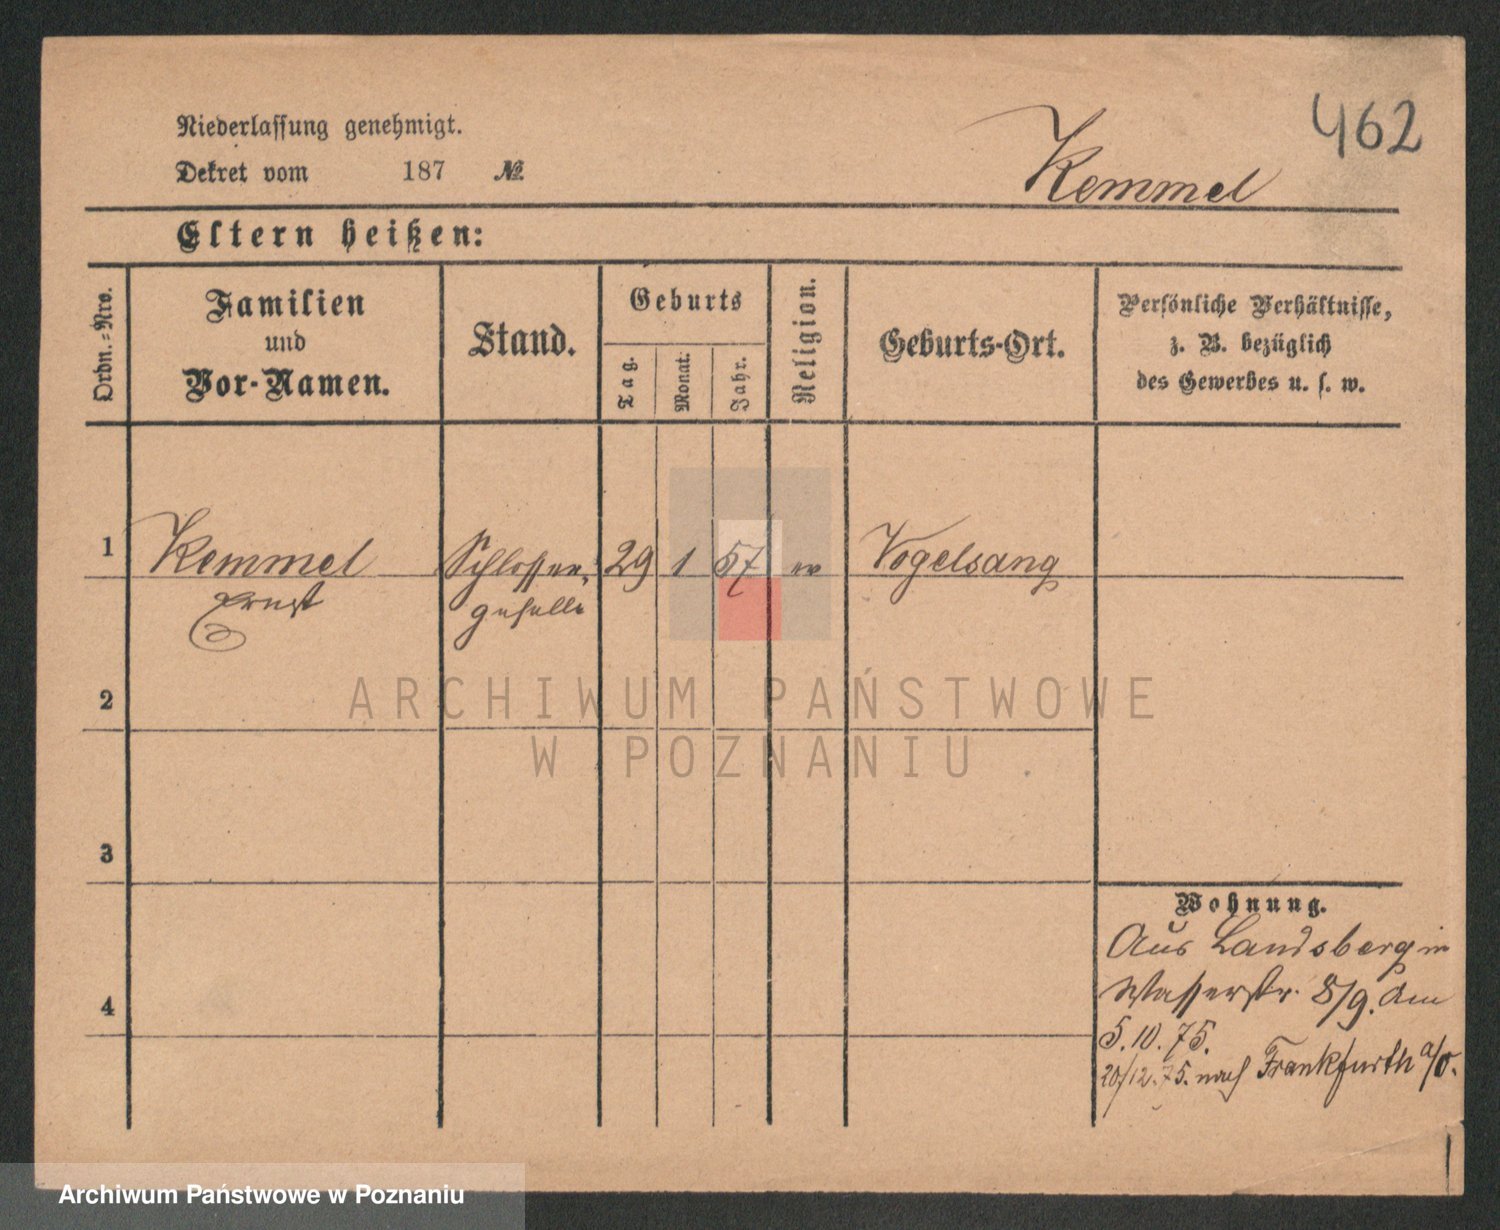 462
Niederlassung genehmigt.
Dekret vom 187 №
Kemmel
Eltern heißen:
Ordn.-Nro.
Familien
und
Vor-Namen.
Stand.
Geburts
Tag.
Monat.
Jahr.
Religion.
Geburts-Ort.
Persönliche Verhältnisse,
z. B. bezüglich
des Gewerbes u. s. w.
1
Kemmel Schlosser- 29 1 57 ev Vogelsang
Ernst geselle
2
3
4
Wohnung.
Aus Landsberg in
Wasserstr. 8/9. am
5.10.75.
20/12.75. nach Frankfurth a/O.
ARCHIWUM PAŃSTWOWE
W POZNANIU
Archiwum Państwowe w Poznaniu